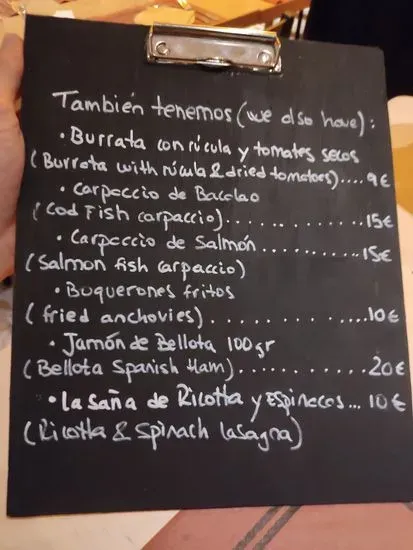 También tenemos (we also have):
• Burrata con rúcula y tomates secos
(Burrata with rúcula & dried tomatoes).... 9€
• Carpaccio de Bacalao
(Cod Fish carpaccio)............ 15€
• Carpaccio de Salmón........... 15€
(Salmon fish carpaccio)
• Boquerones fritos
(fried anchovies)............... 10€
• Jamón de Bellota 100gr
(Bellota Spanish Ham)............ 20€
• Lasaña de Ricotta y Espinacas... 10€
(Ricotta & Spinach lasagna)